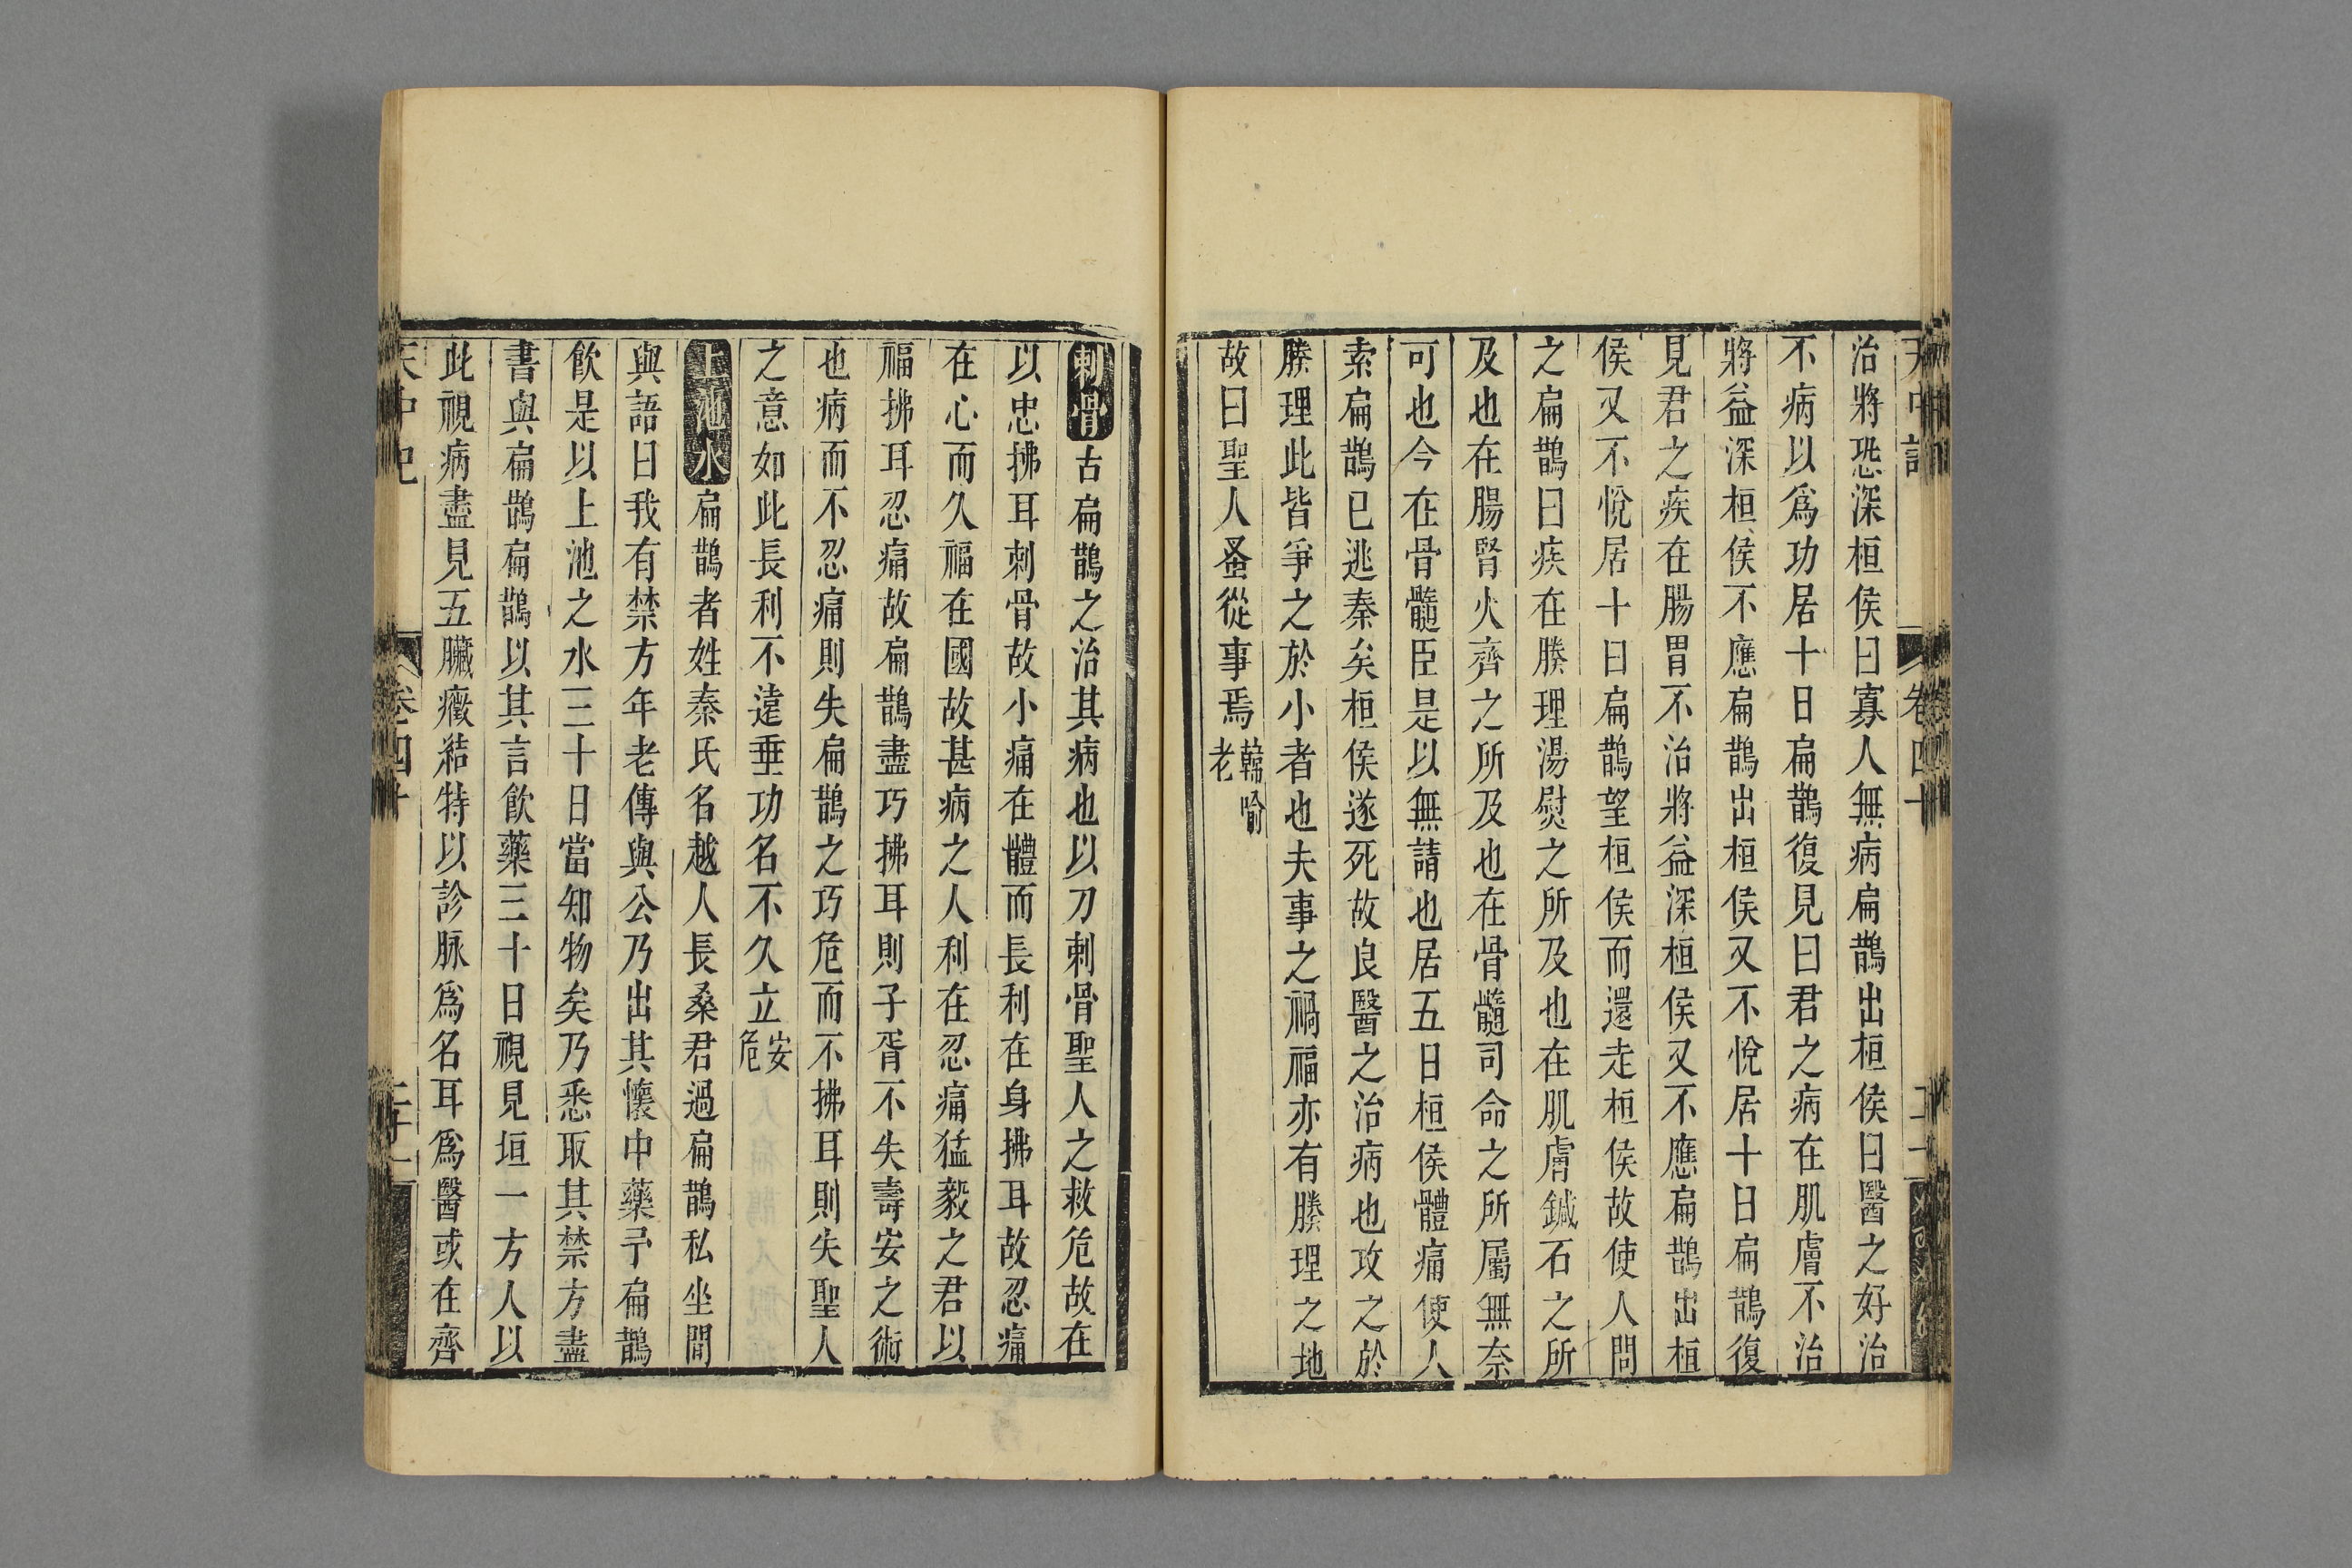 天中記
卷四十
治將恐深桓侯曰寡人無病扁鵲出桓侯曰醫之好治
不病以爲功居十日扁鵲復見曰君之病在肌膚不治
將益深桓侯不應扁鵲出桓侯又不悅居十日扁鵲復
見君之疾在腸胃不治將益深桓侯又不應扁鵲出桓
侯又不悅居十日扁鵲望桓侯而還走桓侯故使人問
之扁鵲曰疾在腠理湯熨之所及也在肌膚鍼石之所
及也在腸腎火齊之所及也在骨髓司命之所屬無奈
可也今在骨髓臣是以無請也居五日桓侯體痛使人
索扁鵲已逃秦矣桓侯遂死故良醫之治病也攻之於
腠理此皆爭之於小者也夫事之禍福亦有腠理之地
故曰聖人蚤從事焉韓喻
老
刺骨古扁鵲之治其病也以刀刺骨聖人之救危故在
以忠拂耳刺骨故小痛在體而長利在身拂耳故忍痛
在心而久福在國故甚病之人利在忍痛猛毅之君以
福拂耳忍痛故扁鵲盡巧拂耳則子胥不失壽安之術
也病而不忍痛則失扁鵲之巧危而不拂耳則失聖人
之意如此長利不遠垂功名不久立安
危
上池水扁鵲者姓秦氏名越人長桑君過扁鵲私坐間
與語曰我有禁方年老傳與公乃出其懷中藥予扁鵲
飲是以上池之水三十日當知物矣乃悉取其禁方盡
書與扁鵲扁鵲以其言飲藥三十日視見垣一方人以
此視病盡見五臟癥結特以診脉爲名耳爲醫或在齊
天中記
卷四十